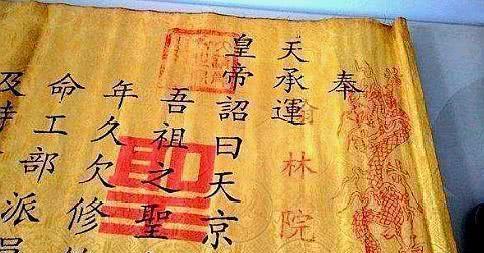 奉
天承運
皇帝詔曰天京
吾祖之聖
年久欠修
命工部派
及
翰林院